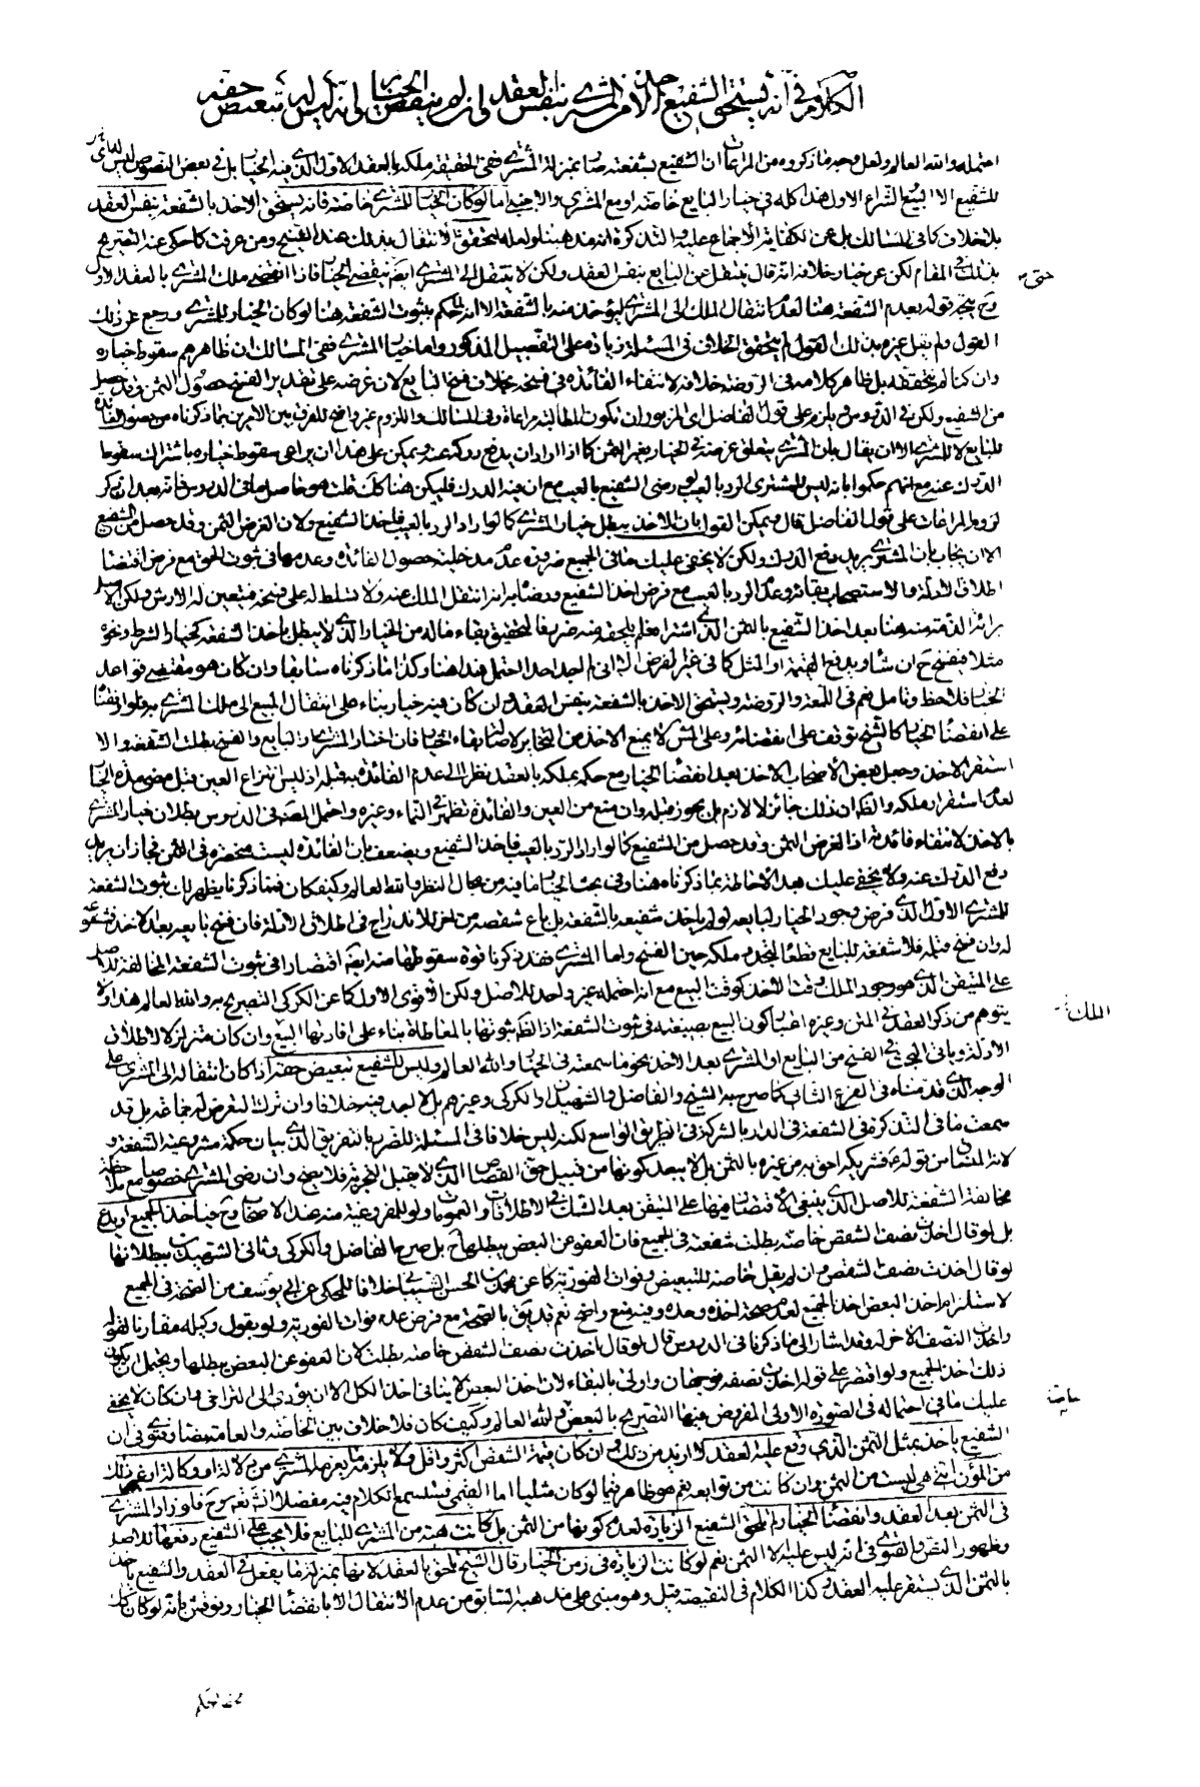 الكلام في انه يستحق الشفيع الاخذ من المشتري بنفس العقد وان لم ينقض الخيار وانه ليس له تبعيض حقه
احتمله والله العالم ولعل وجه ما ذكروه من المراعات ان الشفيع بشفعته صار بمنزلة المشتري ففي الحقيقة ملكه بالعقد الاول الذي فيه الخيار بل في بعض النصوص ليس
للشفيع الا البيع الشراء الاول هذا كله في خيار البايع خاصة او مع المشتري والاجنبي اما لو كان الخيار للمشتري خاصة فانه يستحق الاخذ بالشفعة بنفس العقد
بلا خلاف كما في المسالك بل عن الكفاية الاجماع عليه والتذكرة انه مذهبنا ولعله لتحقق الانتقال بذلك عند الشيخ ومن عرفت كما حكى عنه التصريح
بذلك في المقام لكن عن خلافه انه قال ينتقل عن البايع بنفس العقد ولكن لا ينتقل الى المشتري ايضا حتى ينقضي الخيار فاذا انقضى ملك المشتري بالعقد الاول
وح يتجه قوله بعدم الشفعة هنا لعدم انتقال الملك الى المشتري ليؤخذ منه بالشفعة الا انه حكم بثبوت الشفعة هنا لو كان الخيار للمشتري ورجع عن ذلك
القول ولم ينقل عن غيره ذلك القول لم يتحقق الخلاف في المسئلة زيادة على التفصيل المذكور واما خيار المشتري ففي المسالك ان ظاهرهم سقوط خياره
وان كنا لم نتحققه بل ظاهر كلامه في الروضة خلافه لانتفاء الفائدة في فسخه بخلاف فسخ البايع لان غرضه على تقدير الفسخ حصول الثمن وقد حصل
من الشفيع ولكن في الدروس ويلزم على قول الفاضل اي المزبور ان تكون المطالبة مراعاة وفي المسالك واللزوم غير واضح للفرق بين الامرين بما ذكرناه من حصول الفائدة
للبايع لا للمشتري الا ان يقال بان المشتري يتعلق غرضه في الخيار بغير الثمن كما اذا اراد ان يدفع دركه عنه ويمكن على هذا ان يراعى سقوط خياره باشتراك سقوط
الدرك عنه مع انهم حكموا بانه ليس للمشتري الرد بالعيب لو رضي الشفيع بالعيب مع ان فيه الدرك فليكن هنا كذلك قلت هو حاصل ما في الدروس فانه بعد ان ذكر
لزوم المراعات على قول الفاضل قال ويمكن القول بان الاخذ يبطل خيار المشتري كما لو اراد الرد بالعيب فاخذ الشفيع ولان الغرض الثمن وقد حصل من الشفيع
الا ان يجاب بان المشتري يريد دفع الدرك ولكن لا يخفى عليك ما في الجميع ضرورة عدم مدخلية حصول الفائدة وعدمها في ثبوت الحق مع فرض اقتضاء
اطلاق الادلة والاستصحاب بقائه وعدم الرد بالعيب مع فرض اخذ الشفيع ورضاه به انه انتقل الملك عنه ولا تسلط له على فسخه فتعين له الارش ولكن الاصل
برائة الذمة منه هنا بعد اخذ الشفيع بالثمن الذي اشتراه فلم يلحقه فيه ضرر فالتحقيق بقاء ماله من الخيار الذي لا يبطل باخذ الشفعة كخيار الشرط ونحوه
مثلا فيفسخ ح ان شاء ويدفع القيمة او المثل كما في غير الفرض الا اني لم اجد احدا احتمل هذا هنا وكذا ما ذكرناه سابقا وان كان هو مقتضى قواعد
الخيار فلاحظ وتامل نعم في اللمعة والروضة ويستحق الاخذ بالشفعة بنفس العقد وان كان فيه خيار بناء على انتقال المبيع الى ملك المشتري به فلو اوقفناه
على انقضاء الخيار كالشيخ توقف على انقضائه وعلى المش لا يمنع الاخذ من التخاير لاصالة بقاء الخيار فان اختار المشتري او البايع والفسخ بطلت الشفعة والا
استقر الاخذ وجعل بعض الاصحاب الاخذ بعد انقضاء الخيار مع حكمه بملكه بالعقد نظرا الى عدم الفائدة قبله اذ ليس له انتزاع العين قبل مضي مدة الخيار
لعدم استقرار ملكه والظ ان ذلك جائز لا لازم بل يجوز قبله وان منع من العين والفائدة تظهر في النماء وغيره واحتمل المص في الدروس بطلان خيار المشتري
بالاخذ لانتفاء فائدته اذ الغرض الثمن وقد حصل من الشفيع كما لو اراد الرد بالعيب فاخذ الشفيع ويضعف بان الفائدة ليست منحصرة في الثمن فجاز ان يريد
دفع الدرك عنه ولا يخفى عليك بعد الاحاطة بما ذكرناه هنا وفي بحث الخيار ما فيه من مجال النظر والله العالم وكيف كان فمما ذكرنا يظهر لك ثبوت الشفعة
للمشتري الاول الذي فرض وجود الخيار لبايعه لو لم ياخذ شفيعه بالشفعة بل باع شقصه من اخر للاندراج في اطلاق الادلة فان فسخ بايعه بعد الاخذ فشفعته
له وان فسخ قبله فلا شفعة للبايع قطعا لتجدد ملكه حين الفسخ واما المشتري فقد ذكرنا قوة سقوطها منه ايضا اقتصارا في ثبوت الشفعة المخالفة للاصل
على المتيقن الذي هو وجود الملك وقت الاخذ كوقت البيع مع انه احتمله غير واحد للاصل ولكن الاقوى الاول كما عن الكركي التصريح به والله العالم هذا ولا
يتوهم من ذكر العقد في المتن وغيره اعتبار كون البيع بصيغته في ثبوت الشفعة اذ الظ ثبوتها بالمعاطاة بناء على افادتها البيع وان كان متزلزلا لاطلاق
الادلة وياتي البحث في الفسخ من البايع او المشتري بعد الاخذ نحو ما سمعته في الخيار والله العالم وليس للشفيع تبعيض حقه اذا كان انتقاله الى المشتري على
الوجه الذي قدمناه في الفرع الثاني كما صرح به الشيخ والفاضل والشهيدان والكركي وغيرهم بل لا اجد فيه خلافا وان ترك التعرض له جماعة بل قد
سمعت ما في التذكرة في الشفعة في الدار بالشركة في الطريق الواسع لكنه ليس خلافا في المسئلة للضرر بالتفريق الذي ببيان حكمة مشروعية الشفعة و
لانه المتساق من قوله ع فشريكه احق به من غيره بالثمن بل لا يبعد كونها من قبيل حق القصاص الذي لا يقبل التجزية فلا يصح وان رضي المشتري خصوصا مع ملاحظة
مخالفة الشفعة للاصل الذي ينبغي الاقتصار فيها على المتيقن بعد الشك في الاطلاقات والعمومات ولو للمفروغية منه عند الاصحاب وح فياخذ الجميع او يدع
بل لو قال اخذت نصف الشقص خاصة بطلت شفعته في الجميع فان العفو عن البعض يبطلها ح بل صرح الفاضل والكركي وثاني الشهيدين ببطلانها
لو قال اخذت نصف الشقص وان لم يقل خاصة للتبعيض وفوات الفورية كما عن محمد بن الحسن الشيباني خلافا للمحكي عن ابي يوسف من الصحة في الجميع
لاستلزام اخذ البعض اخذ الجميع لعدم صحة اخذه وحده وفيه منع واضح نعم قد يتجه الصحة مع فرض عدم فوات الفورية ولو بقول وكيله مقارنا لقوله
واخذت النصف الاخر له وقد اشار الى ما ذكرنا في الدروس قال لو قال اخذت نصف الشقص خاصة بطلت لان العفو عن البعض يبطلها ويحتمل ان يكون
ذلك اخذا للجميع ولو اقتصر على قوله اخذت نصفه فوجهان واولى بالبقاء لان اخذ البعض لا ينافي اخذ الكل الا ان يؤدي الى التراخي وان كان لا يخفى
عليك ما في احتماله في الصورة الاولى المفروض فيها التصريح بالبعض والله العالم وكيف كان فلا خلاف بين الخاصة والعامة نصا وفتوى في ان
الشفيع ياخذ بمثل الثمن الذي وقع عليه العقد لا ازيد من ذلك وان كان قيمة الشقص اكثر او اقل ولا يلزمه ما يغرمه المشتري من دلالة او وكالة او غير ذلك
من المؤن التي هي ليست من الثمن وان كانت من توابعه نعم هو ظاهر فيما لو كان مثليا اما القيمي فستسمع الكلام فيه مفصلا انش نعم روح فلو زاد المشتري
في الثمن بعد العقد وانقضاء الخيار لم تلحق الشفيع الزيادة لعدم كونها من الثمن بل كانت هبة من المشتري للبايع فلا يجب على الشفيع دفعها للاصل
وظهور النص والفتوى في انه ليس عليه الا الثمن نعم لو كانت الزيادة في زمن الخيار قال الشيخ تلحق بالعقد لانها بمنزلة ما يفعل في العقد والشفيع ياخذ
بالثمن الذي يستقر عليه العقد وكذا الكلام في النقيصة قبل وهو مبني على مذهبه السابق من عدم الانتقال الا بانقضاء الخيار ونوقش بانه لو كان كذلك
حتى
الملك
خاصة